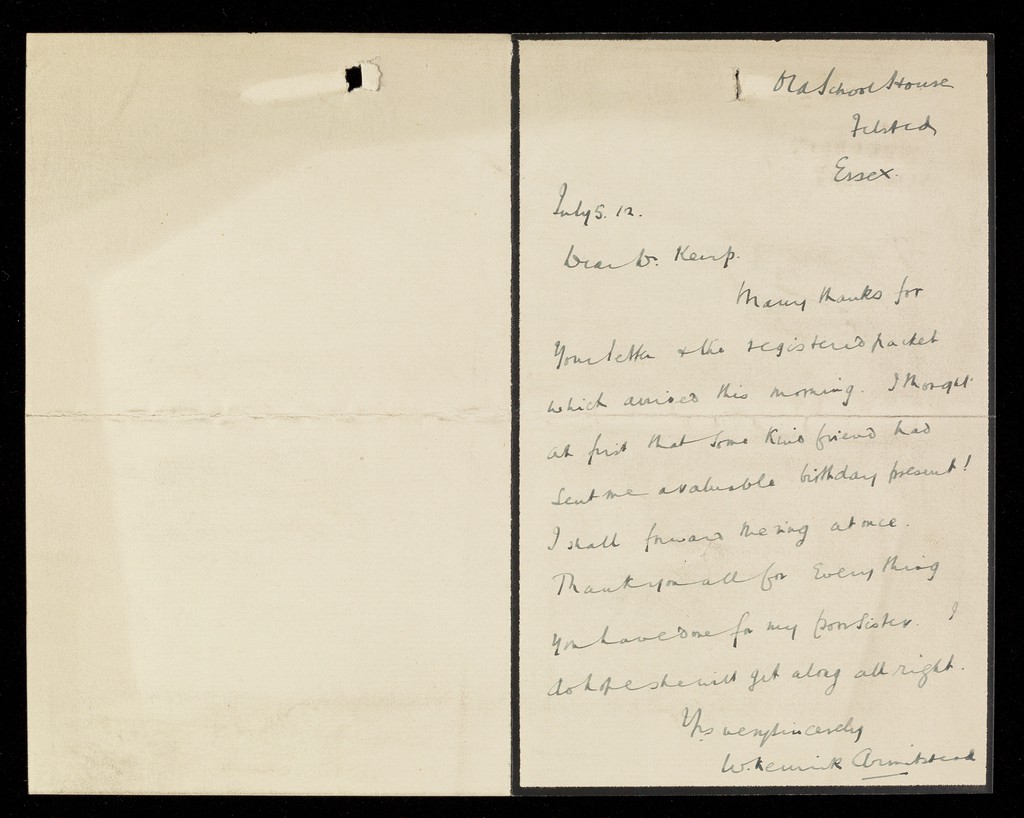 Old School House
Felsted
Essex.
July 5. 12.
Dear Dr. Kemp.
Many thanks for
your letter & the registered packet
which arrived this morning. I thought
at first that some kind friend had
sent me a valuable birthday present!
I shall forward the ring at once.
Thank you all for everything
you have done for my poor sister. I
do hope she will get along all right.
Yrs very sincerely
W. Kenrick Armitstead